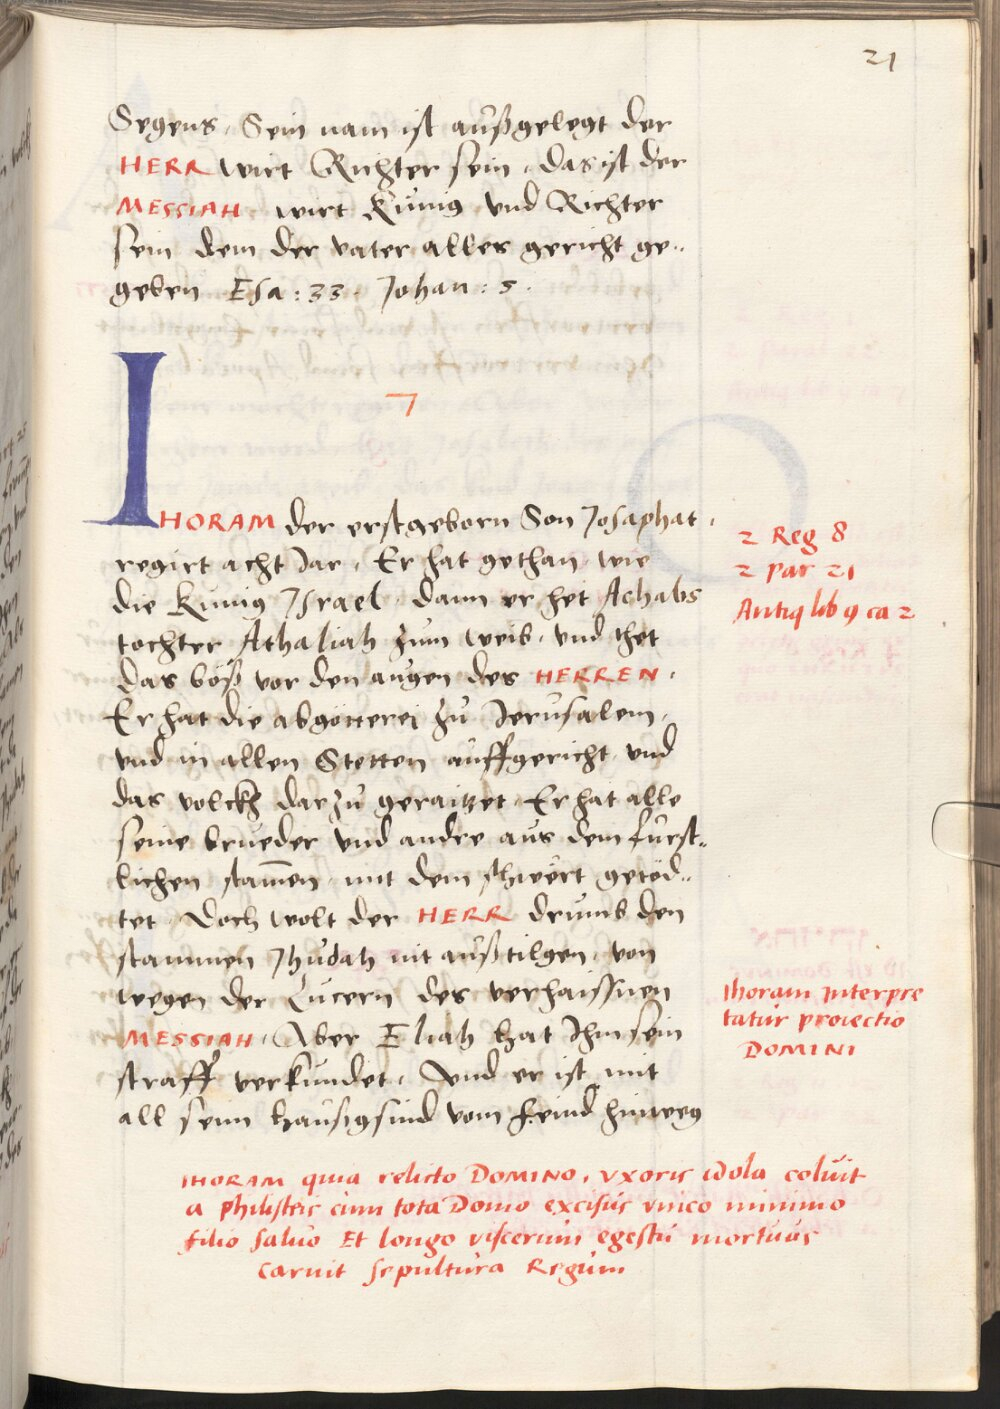 21
Segens, Sein nam ist außgelegt der
HERR wirt Richter sein, das ist der
MESSIAH wirt Kunig vnd Richter
sein dem der vater alles gericht ge„
geben Esa : 33. Johan : 5.
7
IHORAM der erstgeborn Son Josaphat,
regirt acht Jar, Er hat gethan wie
die Kunig Israel, dann er het Achabs
tochter Athaliah zum weib, vnd thet
das böß vor den augen des HERREN,
Er hat die abgötterei zu Jerusalem,
vnd in allen Stetten auffgericht, vnd
das volckh darzu geraitzet, Er hat alle
seine brueder vnd andre aus dem furst„
lichen stam̄en mit dem schwert getöd„
tet, Doch wolt der HERR drumb den
stammen Jhudah nit außtilgen, von
wegen der Lucern des verhaissnen
MESSIAH, Aber Eliah hat Jhm sein
straff verkundet, Vnd er ist mit
all seim hausgsind vom feind hinweg
2 Reg 8
2 par 21
Antiq lib 9 ca 2
Ihoram Interpre
tatur proiectio
DOMINI
IHORAM quia relicto DOMINO, vxoris idola coluit
a philisteis cum tota Domo excisus vnico minimo
filio saluo Et longo viscerum egestu mortuus
caruit sepultura Regum